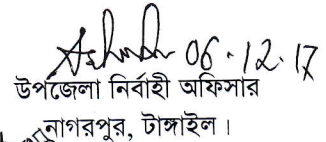 06.12.17
উপজেলা নির্বাহী অফিসার
নাগরপুর, টাঙ্গাইল।